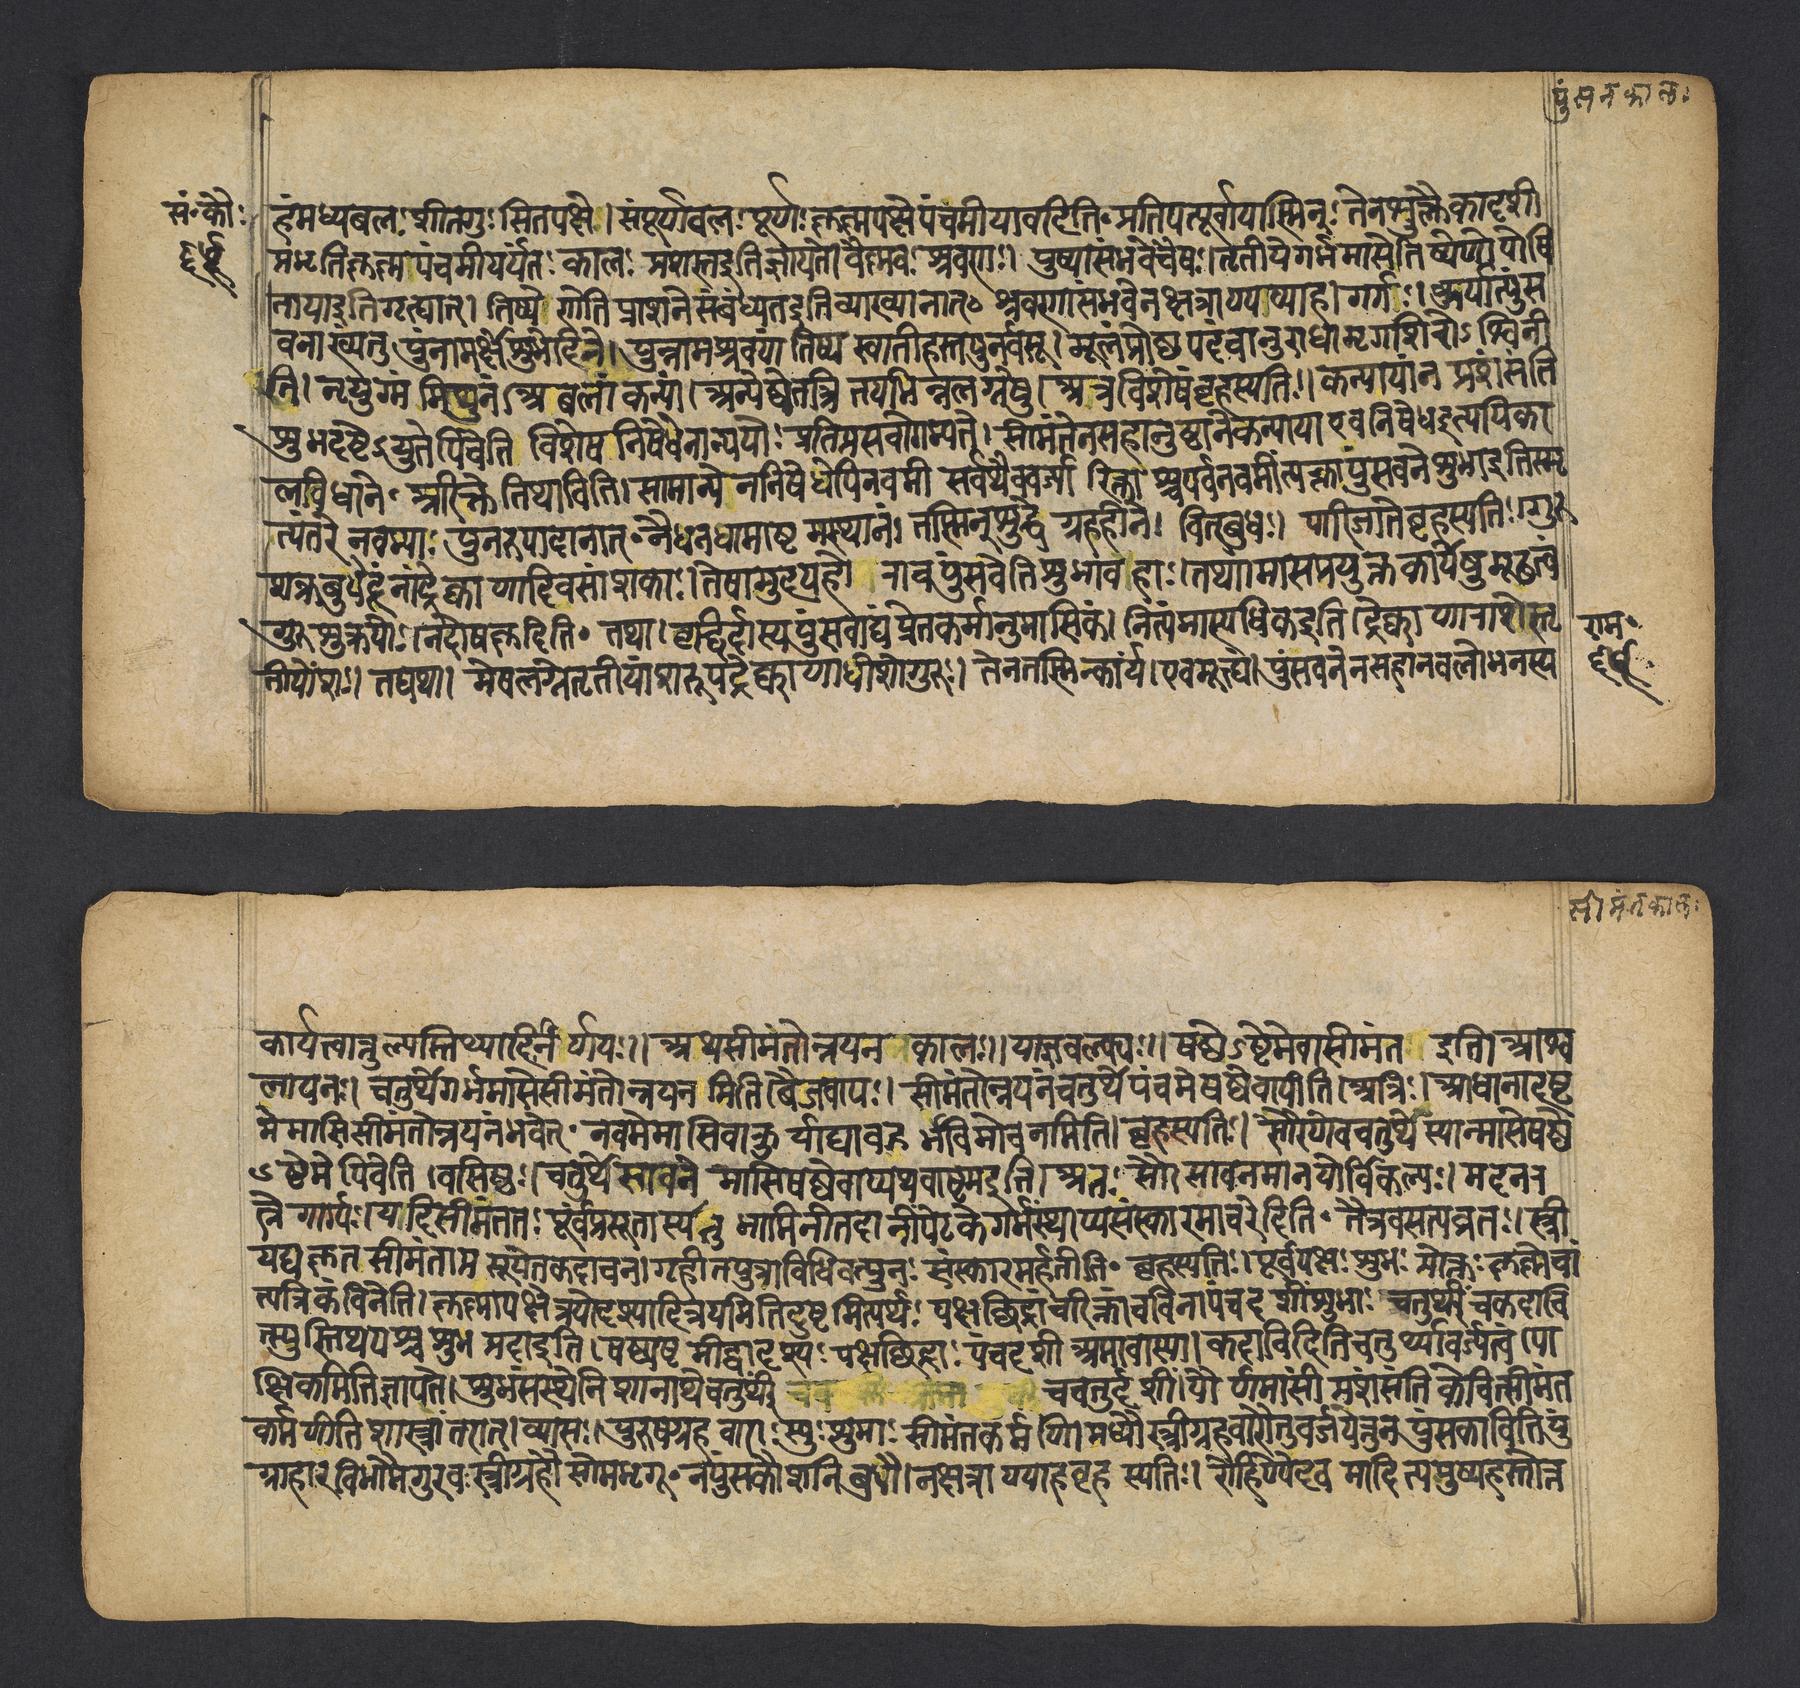 पुंसवनकालः
सं॰कौ॰
हंमध्यबलः शीतगुः सितपक्षे। संपूर्णबलः पूर्णः कृष्णपक्षे पंचमीयावदिति॰ प्रतिपत्पूर्वा यास्मिन्: तेनशुक्लैकादशी
प्रभृतिकृष्णपंचमीपर्यंतः कालः प्रशस्तइतिज्ञायते। वैष्णवः श्रवणः। पुष्यासंभवेचैषः। तृतीयेगर्भमासेतिष्येणोपोषि
तायाइतिगृह्यात्। तिष्ये णेति प्राशने संबंध्यतइतिव्याख्यानात्॰ श्रवणासंभवेनक्षत्राण्यप्याह। गर्गः। कुर्यात्पुंस
वनाख्यंतु पुंनामर्क्षे शुभेदिने। पुन्नामश्रवणं तिष्य स्वातीहस्तपुनर्वसू। मूलंप्रोष्ठपदंचानुराधामृगशिरोऽश्विनी
ति। नृयुग्मं मिथुनं। अबलां कन्यां। अन्येष्वेतत्त्रितयभिन्नलग्नेषु। अत्रविशेषंबृहस्पतिः। कन्यायांन प्रशंसंति
शुभदृष्टेयुतेपिवेति विशेषनिषेधेनान्ययोः प्रतिप्रसवोगम्यते। सीमंतेनसहानुष्ठानेकन्यायाएवनिषेधइत्यपिका
लविधाने॰ अरिक्ते तिथाविति। सामान्येननिषेधेपिनवमी सर्वथैववर्ज्या रिक्ताश्चपर्वनवमींत्यक्त्वापुंसवनेशुभाइतिस्मृ
त्यंतरे नवम्याः पुनरुपादानात्॰ नैधनधामाष्टमस्थानं। तस्मिन्शुद्धे ग्रहहीने। वित्बुधः। पारिजातेबृहस्पतिः। गुरु
शुक्रबुधेंदूनांद्रेष्काणादिवसांशकाः। तेषामुदग्रहो रावपुंसवेतिशुभावहाः। तथा। मासप्रयुक्तकार्येषुमूढत्वं
गुरुशुक्रयोः। नदोषकृदिति॰ तथा। वृद्धिर्दास्यपुंसवाद्यंप्रेतकर्मानुमासिकं। नित्यंमास्यधिकइति द्रेष्काणोराशेस्तृ
तीयोंशः। तद्यथा। मेषलग्नेतृतीयांशरूपद्रेष्काणाधीशोगुरुः। तेनतस्मिन्कार्यं। एवमूह्यं। पुंसवनेनसहानवलोभनस्य
राम॰
सीमंतकालः
कार्यत्वात्तुल्यस्तिथ्यादिर्निर्णयः॥ अथसीमंतोन्नयनकालः॥ याज्ञवल्क्यः॥ षष्ठेऽष्टमेवासीमंत इति। आश्व
लायनः। चतुर्थेगर्भमासेसीमंतोन्नयन मिति बैजवापः। सीमंतोन्नयनंचतुर्थेपंचमेषष्ठेवापीति। अत्रिः। आधानादष्ट
मेमासिसीमंतोन्नयनंभवेत्॰ नवमेमासिवाकुर्याद्यावद्गर्भविमोचनमिति। बृहस्पतिः। सौरणेवचतुर्थेस्यान्मासेषष्ठे
ऽष्टमेपिवेति। वसिष्ठः। चतुर्थेसावने मासिषष्ठेवाप्यथवाष्टमइति। अतः सौरसावनमानयोर्विकल्पः। मदनर
त्ने गार्ग्यः। यदिसीमंततः पूर्वंप्रसूतास्यात्तु भामिनीतदानींपेटकेगर्भंस्थाप्यसंस्कारमाचरेदिति॰ तत्रैवसत्यव्रतः। स्त्री
यद्यकृतसीमंताप्रसूयेतकदाचन। गृहीतपुत्राविधिवत्पुनः संस्कारमर्हतीति॰ बृहस्पतिः। पूर्वपक्षः शुभः प्रोक्तः कृष्णेचां
त्यत्रिकंविनेति। कृष्णापक्षेत्रयोदश्यादित्रयमितिदुष्टमित्यर्थः पक्षच्छिद्रांचरिक्तांचविनापंचदशींशुभाः चतुर्थींचकदाचि
त्स्युस्तिथयश्चशुभप्रदाइति। षष्ठ्यष्टमीद्वादश्यः पक्षच्छिद्राः पंचदशी अमावास्या। कदाचिदितिचतुर्थ्यावर्ज्यत्वंपा
क्षिकमितिज्ञापते। शुभसंस्थेनिशानाथेचतुर्थीं चचतुर्दशीं। पौर्णमासीं प्रशंसंति केचित्सीमंत
कर्मणीति शास्त्रांतरात्। व्यासः। पुरुषग्रहवाराःस्युःशुभाः सीमंतकर्मणि। मध्यौस्त्रीग्रहवारौतुवर्जयेत्तुनपुंसकाविति पुं
ग्राहारविभौमगुरवःस्त्रीग्रहौ सोमभृगू॰ नपुंसकौशनिबुधौ। नक्षत्राण्याहबृहस्पतिः। रोहिण्यैंदवमादित्यपुष्यहस्तोत्त